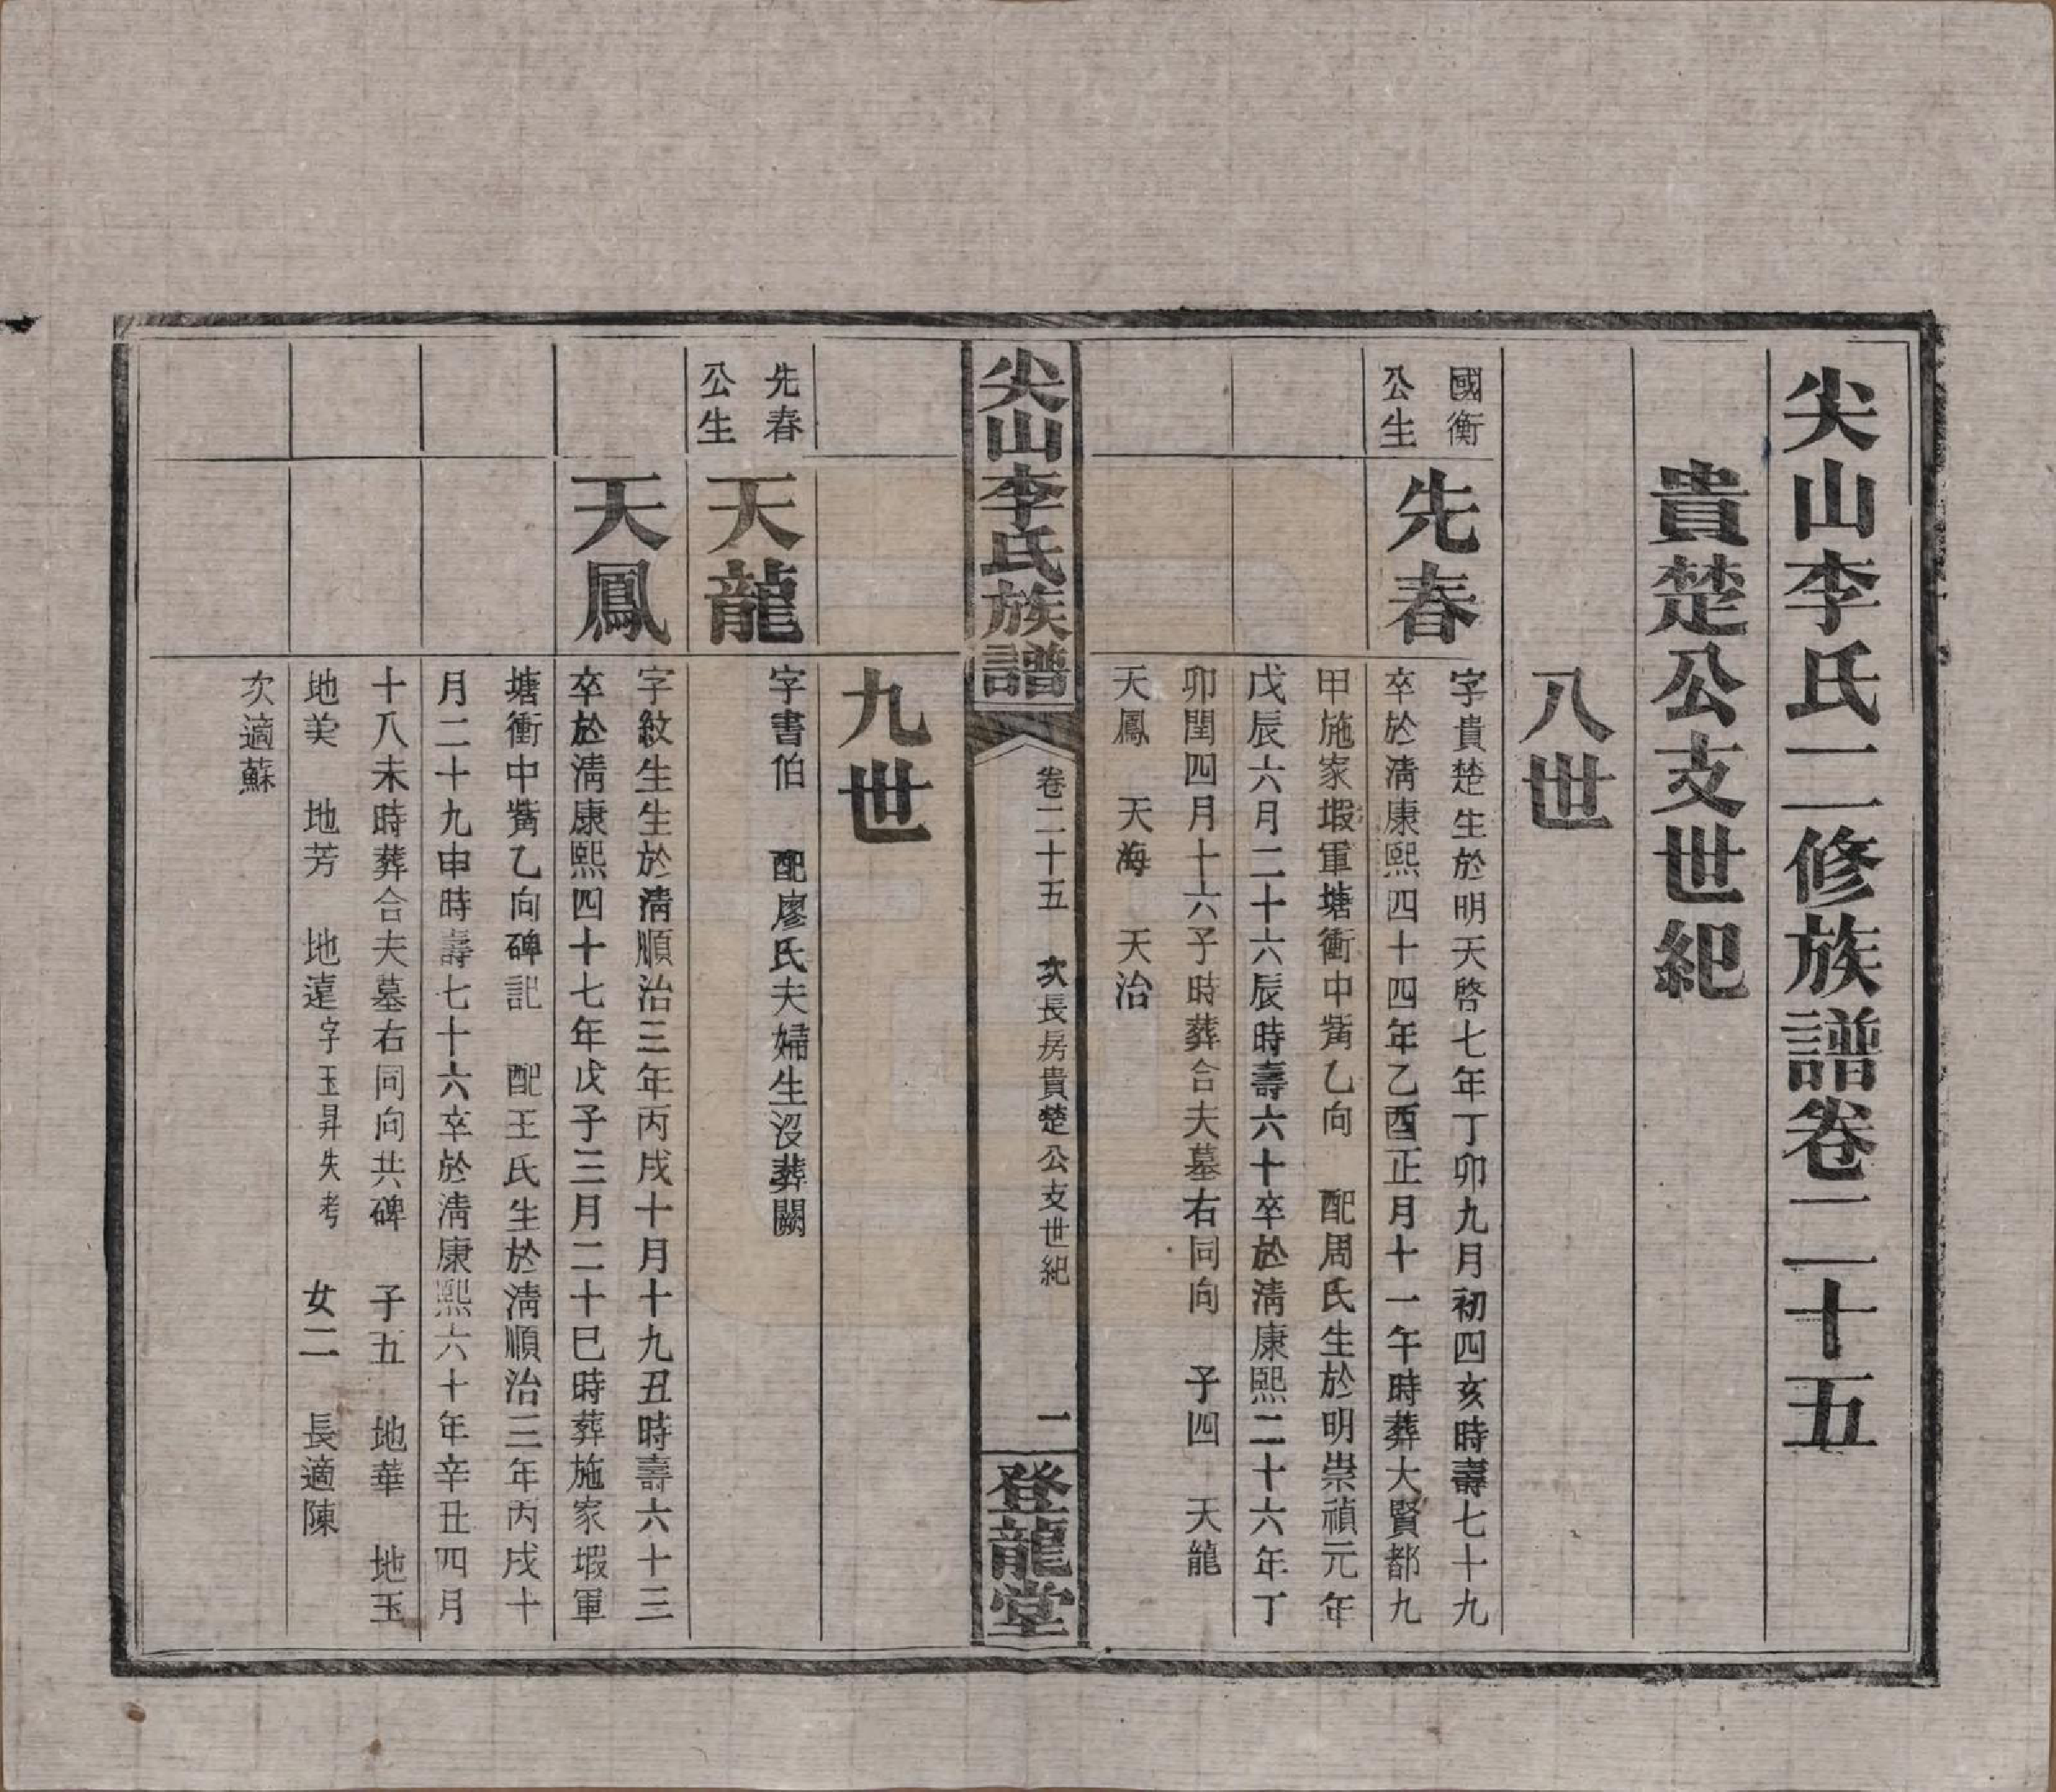 尖山李氏二修族譜卷二十五
貴楚公支世紀
八世
國衡
公生
先春
字貴楚生於明天啓七年丁卯九月初四亥時壽七十九
卒於淸康熙四十四年乙酉正月十一午時葬大賢都九
甲施家塅軍塘衝中嘴乙向 配周氏生於明崇禎元年
戊辰六月二十六辰時壽六十卒於淸康熙二十六年丁
卯閏四月十六子時葬合夫墓右同向 子四 天龍
天鳳 天海 天治
尖山李氏族譜
卷二十五 次長房貴楚公支世紀
二
登龍堂
九世
先春
公生
天龍
字書伯 配廖氏夫婦生沒葬闕
天鳳
字紋生生於淸順治三年丙戌十月十九丑時壽六十三
卒於淸康熙四十七年戊子三月二十巳時葬施家塅軍
塘衝中嘴乙向碑記 配王氏生於淸順治三年丙戌十
月二十九申時壽七十六卒於淸康熙六十年辛丑四月
十八未時葬合夫墓右同向共碑 子五 地華 地玉
地美 地芳 地遠字玉昇失考 女二 長適陳
次適蘇